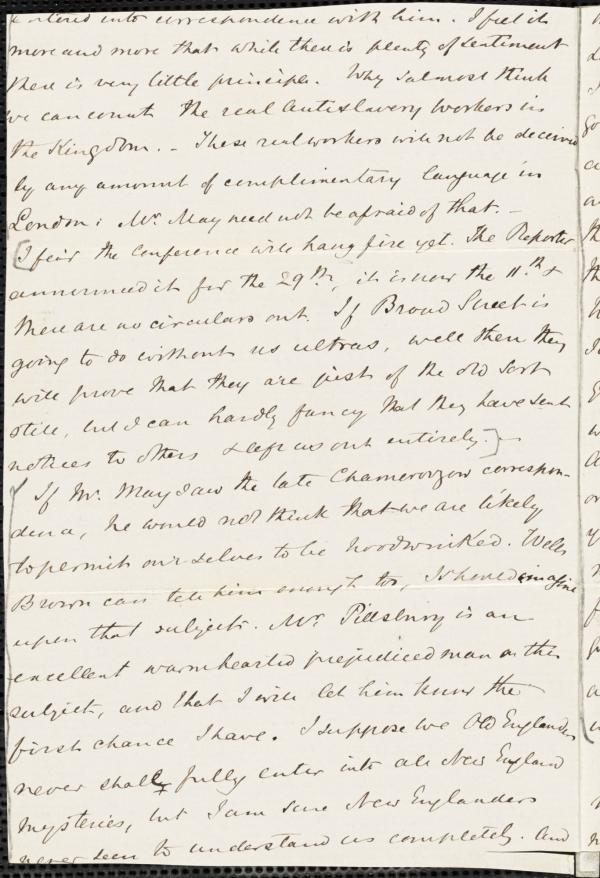 entered into correspondence with him. I feel it
more and more that while there is plenty of sentiment
there is very little principle. Why I almost think
we can count the real Antislavery workers in
the Kingdom. - These real workers will not be deceived
by any amount of complimentary language in
London; Mr. May need not be afraid of that. -
[I fear the Conference will hang fire yet. The Reporter
announced it for the 29th, it is now the 11th &
there are no circulars out. If Broad Street is
going to do without us ultras, well then they
will prove that they are just of the old sort
still, but I can hardly fancy that they have sent
notices to others & left us out entirely.] -
If Mr. May saw the late Chamerovzow correspon-
dence, he would not think that we are likely
to permit our-selves to be hoodwinked. Wells
Brown can tell him enough too, I should imagine
upon that subject. Mr. Pillsbury is an
excellent warmhearted prejudiced man on this
subject, and that I will let him know the
first chance I have. I suppose we Old Englanders
never shall fully enter into all New England
mysteries, but I am sure New Englanders
never seem to understand us completely. And